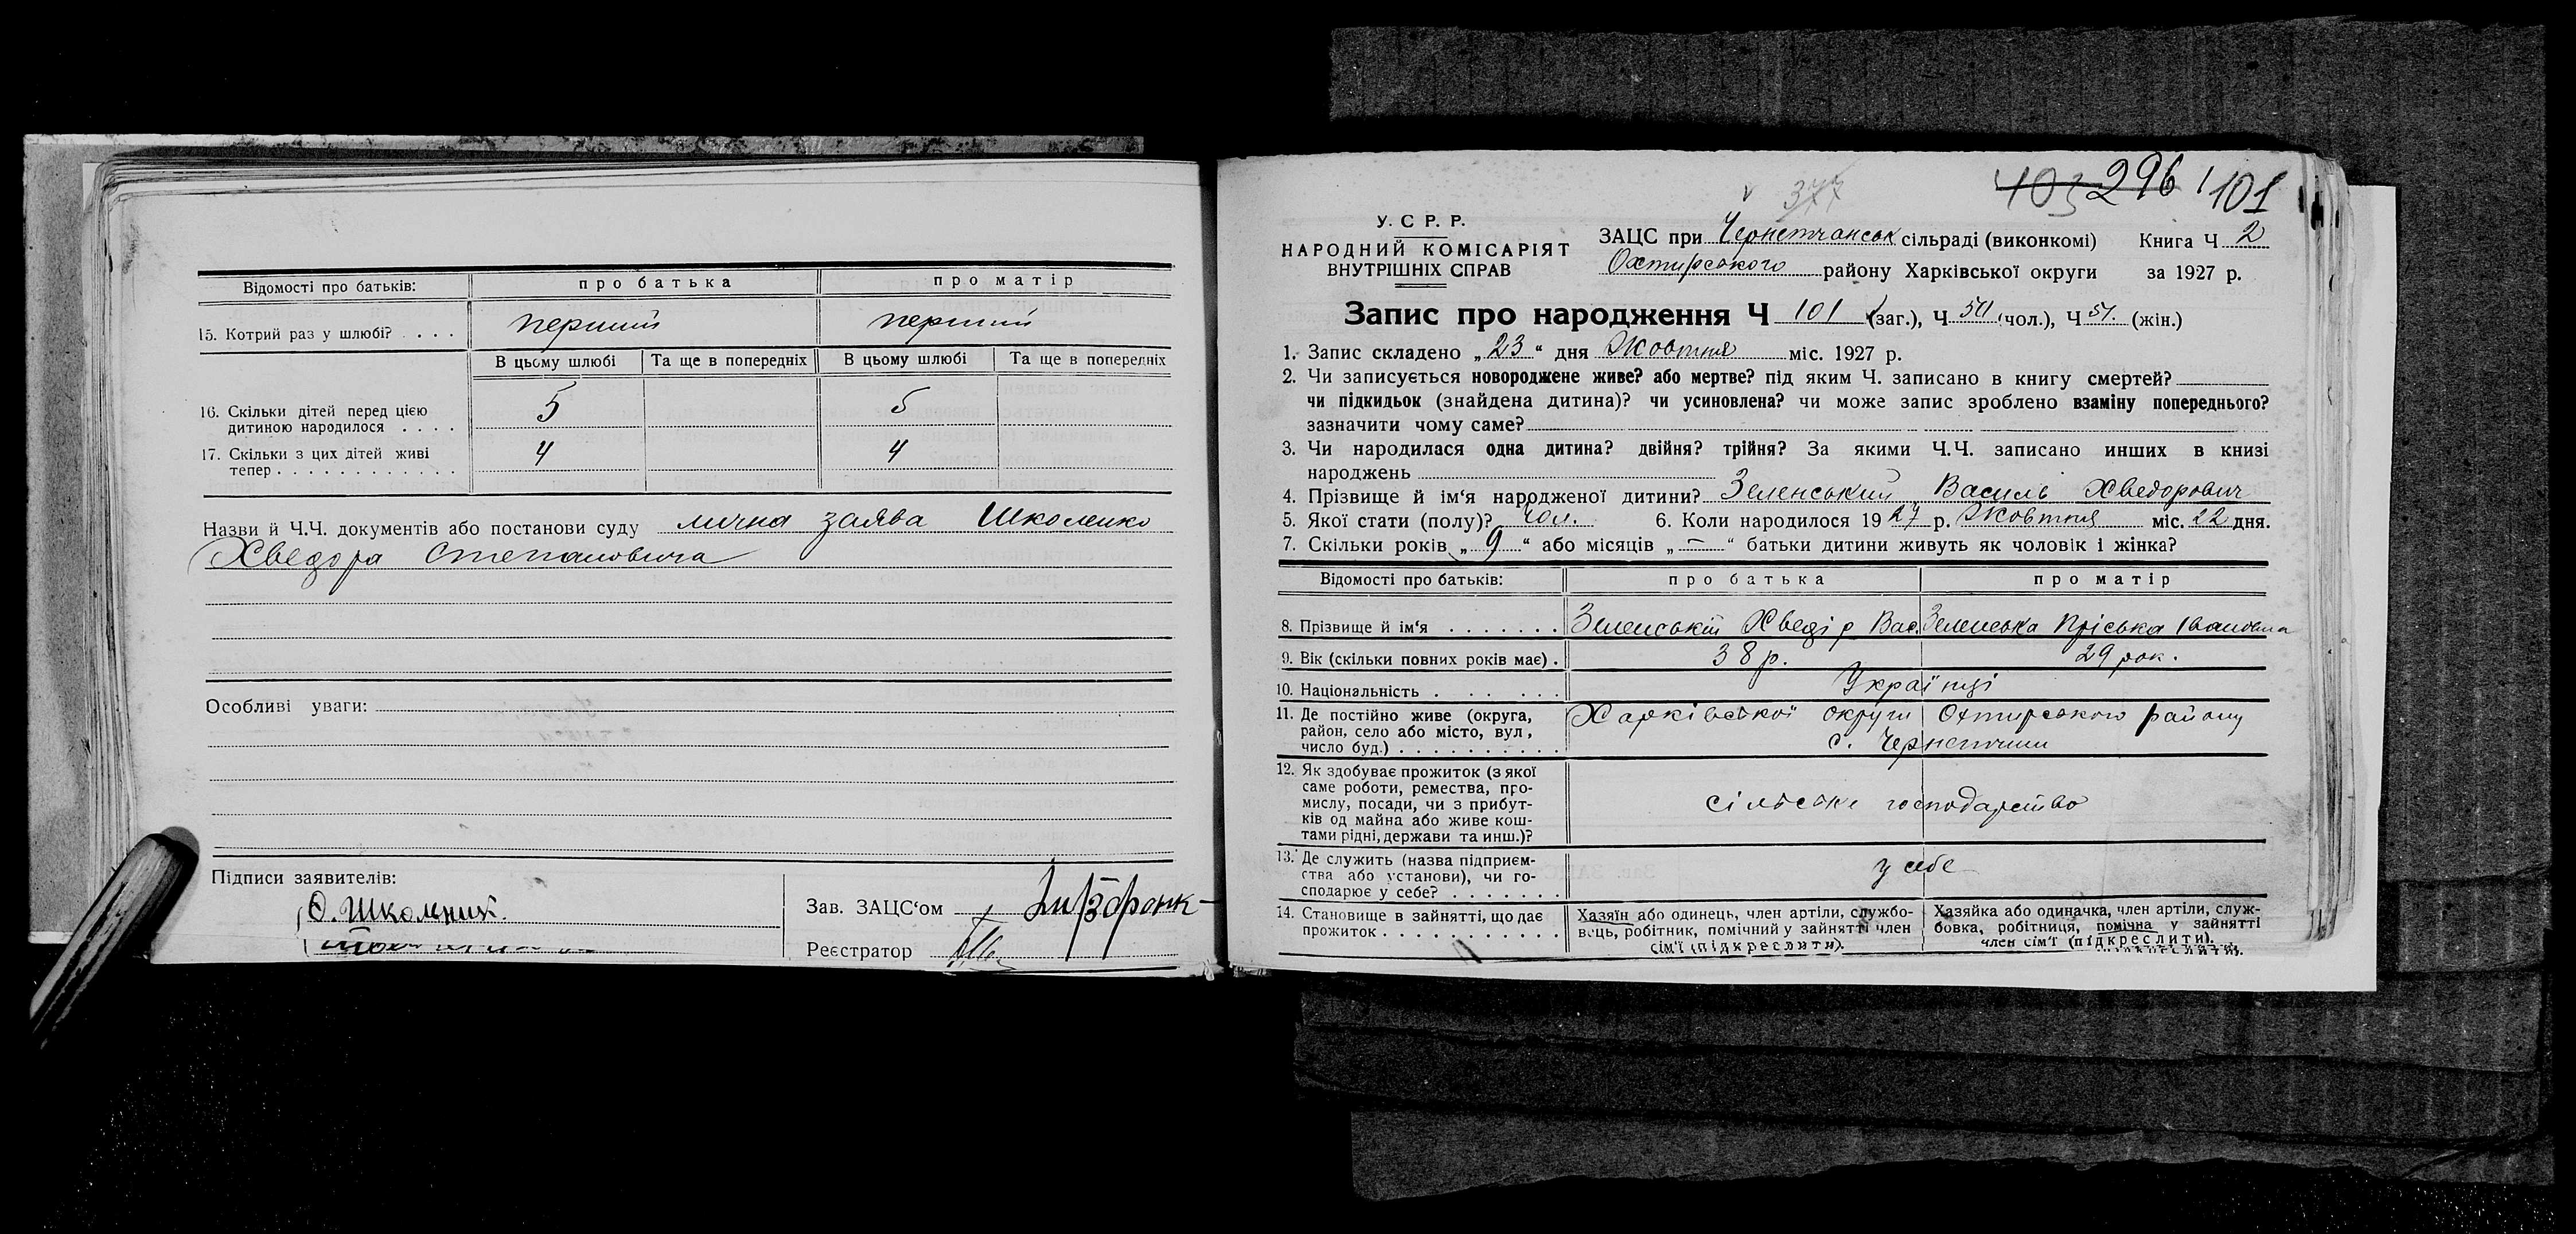 Відомості про батьків: про батька про матір
15. Котрий раз у шлюбі? . . . . перший перший
В цьому шлюбі Та ще в попередніх В цьому шлюбі Та ще в попередніх
16. Скільки дітей перед цією
дитиною народилося . . . . 5 5
17. Скільки з цих дітей живі
тепер . . . . . . . . . . . . 4 4
Назви й Ч.Ч. документів або постанови суду лична заява Школенко
Хведора Степановича
Особливі уваги:
Підписи заявителів:
О. Школьник.
Зав. ЗАЦС‘ом
Реєстратор
377
403 296 101
У. С Р. Р.
НАРОДНИЙ КОМІСАРІЯТ
ВНУТРІШНІХ СПРАВ
ЗАЦС при Чернетчанськ сільраді (виконкомі) Книга Ч 2
Охтирського району Харківської округи за 1927 р.
Запис про народження Ч 101 (заг.), Ч 50 (чол.), Ч 51. (жін.)
1. Запис складено „23“ дня Жовтня міс. 1927 р.
2. Чи записується новороджене живе? або мертве? під яким Ч. записано в книгу смертей?
чи підкидьок (знайдена дитина)? чи усиновлена? чи може запис зроблено взаміну попереднього?
зазначити чому саме?
3. Чи народилася одна дитина? двійня? трійня? За якими Ч.Ч. записано инших в книзі
народжень
4. Прізвище й ім‘я народженої дитини? Зеленський Василь Хведорович
5. Якої стати (полу)? чол. 6. Коли народилося 1927 р. Жовтня міс. 22 дня.
7. Скільки років „9“ або місяців „—“ батьки дитини живуть як чоловік і жінка?
Відомості про батьків: про батька про матір
8. Прізвище й ім‘я . . . . . . . Зеленській Хведір Вас. Зеленська Пріська Івановна
9. Вік (скільки повних років має) . 38 р. 29 рок.
10. Національність . . . . . . Українці
11. Де постійно живе (округа,
район, село або місто, вул,
число буд.) . . . . . . . . . . Харківської округи Охтирського району
с. Чернетчини
12. Як здобуває прожиток (з якої
саме роботи, ремества, про-
мислу, посади, чи з прибут-
ків од майна або живе кош-
тами рідні, держави та инш.)? сільське господарство
13. Де служить (назва підприєм-
ства або установи), чи го-
сподарює у себе? . . . . . . . у себе
14. Становище в зайнятті, що дає
прожиток . . . . . . . . . . .
Хазяїн або одинець, член артіли, службо-
вець, робітник, помічний у зайнятті член
сім‘ї (підкреслити).
Хазяйка або одиначка, член артіли, служ-
бовка, робітниця, помічна у зайнятті
член сім‘ї (підкреслити).